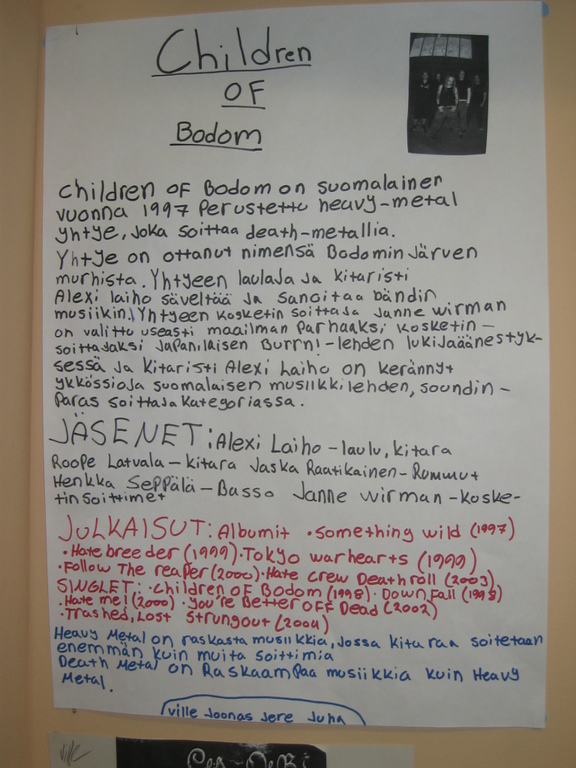 Children
OF
Bodom
Children OF Bodom on suomalainen
vuonna 1997 Perustettu heavy-metal
yhtye, joka soittaa death-metallia.
Yhtye on ottanut nimensä Bodominjärven
murhista. Yhtyeen laulaja ja kitaristi
Alexi laiho säveltää ja sanoitaa bändin
musiikin. Yhtyeen kosketin soittaja Janne wirman
on valittu useasti maailman Parhaaksi kosketin-
soittajaksi Japanilaisen Burrn!-lehden lukijaäänestyk-
sessä ja kitaristi Alexi Laiho on kerännyt
ykkössioja suomalaisen musiikkilehden, soundin-
Paras soittaja kategoriassa.
JÄSENET: Alexi Laiho-laulu, kitara
Roope Latvala-kitara Jaska Raatikainen-Rummut
Henkka Seppälä-Basso Janne wirman-koske-
tinsoittimet
JULKAISUT: Albumit •something wild (1997)
•Hatebreeder (1999) •Tokyo warhearts (1999)
•Follow The reaper (2000) •Hate crew Deathroll (2003)
SINGLET: •Children of Bodom (1998) •Downfall (1998)
•Hate me! (2000) •You're Better OFF Dead (2002)
•Trashed, Lost & Strungout (2004)
Heavy Metal on raskasta musiikkia, jossa kitaraa soitetaan
enemmän kuin muita soittimia
Death Metal on Raskaampaa musiikkia kuin Heavy
Metal.
ville Joonas Jere Juha
ville